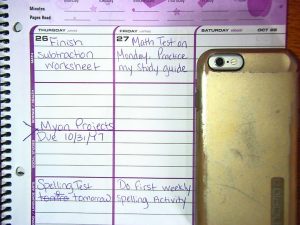 Minutes
Pages Read:
THURSDAY
FRIDAY
SATURDAY
OCT 28
26 Finish
subtraction
worksheet
27 Math Test on
Monday. Practice
my study guide
Myon Projects
Due 10/31/17
Spelling Test
tomorrow
Do First weekly
Spelling Activity